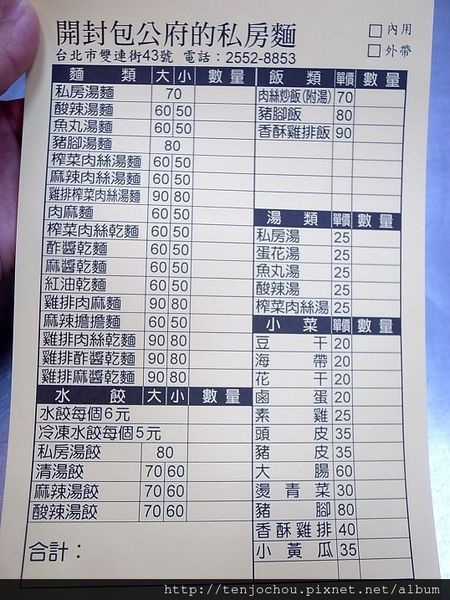 開封包公府的私房麵
□內用
台北市雙連街43號 電話：2552-8853
□外帶
麵類 大 小 數量
私房湯麵 70
酸辣湯麵 60 50
魚丸湯麵 60 50
豬腳湯麵 80
榨菜肉絲湯麵 60 50
麻辣肉絲湯麵 60 50
雞排榨菜肉絲湯麵 90 80
肉麻麵 60 50
榨菜肉絲乾麵 60 50
酢醬乾麵 60 50
麻醬乾麵 60 50
紅油乾麵 60 50
雞排肉麻麵 90 80
麻辣擔擔麵 60 50
雞排肉絲乾麵 90 80
雞排酢醬乾麵 90 80
雞排麻醬乾麵 90 80
水餃 大 小 數量
水餃每個6元
冷凍水餃每個5元
私房湯餃 80
清湯餃 70 60
麻辣湯餃 70 60
酸辣湯餃 70 60
合計：
飯類 單價 數量
肉絲炒飯(附湯) 70
豬腳飯 80
香酥雞排飯 90
湯類 單價 數量
私房湯 25
蛋花湯 25
魚丸湯 25
酸辣湯 25
榨菜肉絲湯 25
小菜 單價 數量
豆干 20
海帶 20
花干 20
滷蛋 20
素雞 25
頭皮 35
豬皮 35
大腸 60
燙青菜 30
豬腳 80
香酥雞排 40
小黃瓜 35
http://tenjochou.pixnet.net/album